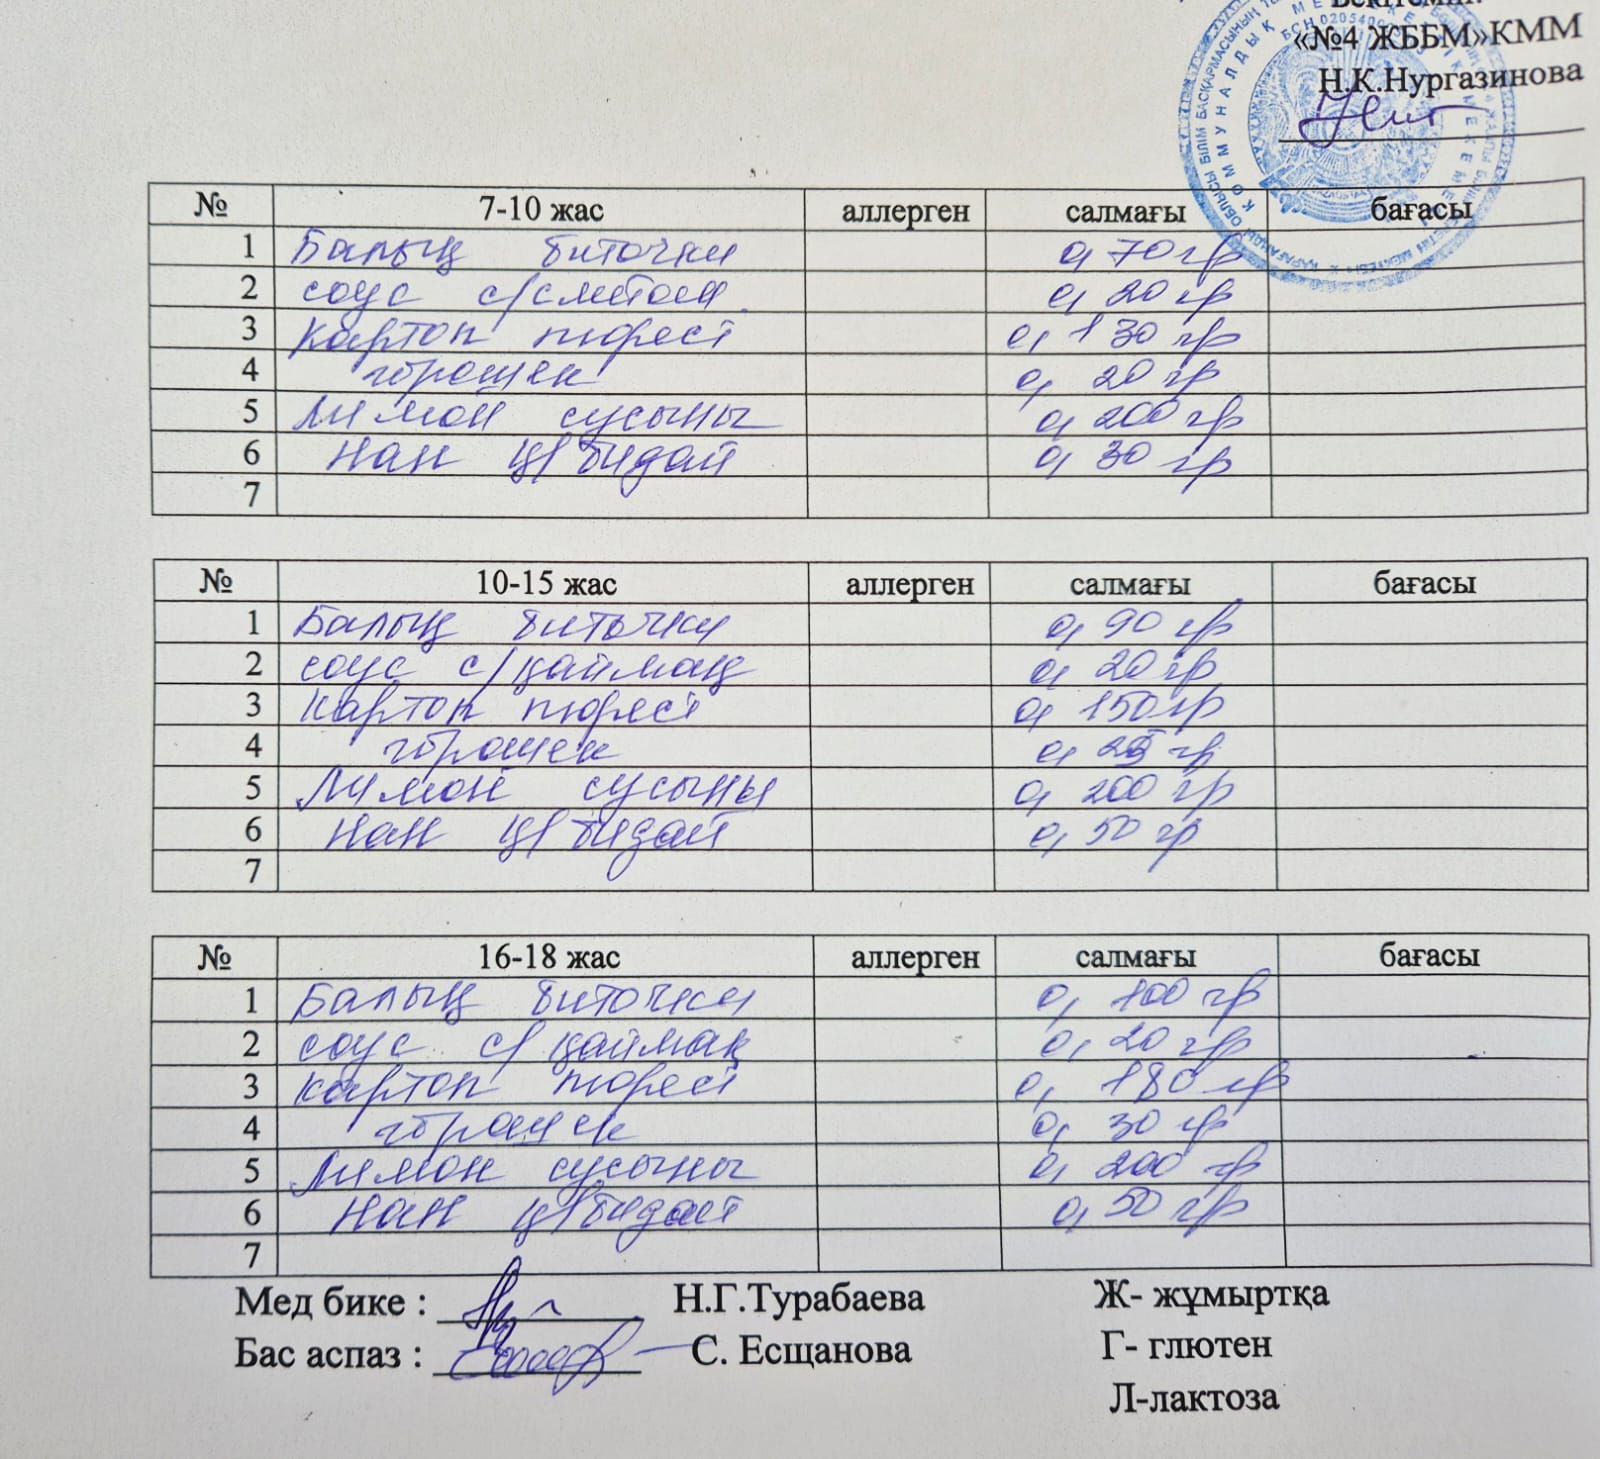 Бекітемін:
«№4 ЖББМ»КММ
Н.К.Нургазинова
№ 7-10 жас аллерген салмағы бағасы
1 Балық биточки 0,70 гр
2 соус с/сметана 0,20 гр
3 Картоп пюресі 0,130 гр
4 горошек 0,20 гр
5 Лимон сусыны 0,200 гр
6 Нан ц/бидай 0,30 гр
7
№ 10-15 жас аллерген салмағы бағасы
1 Балық биточки 0,90 гр
2 соус с/қаймақ 0,20 гр
3 Картоп пюресі 0,150 гр
4 горошек 0,25 гр
5 Лимон сусыны 0,200 гр
6 Нан ц/бидай 0,50 гр
7
№ 16-18 жас аллерген салмағы бағасы
1 Балық биточки 0,100 гр
2 соус с/қаймақ 0,20 гр
3 Картоп пюресі 0,180 гр
4 горошек 0,30 гр
5 Лимон сусыны 0,200 гр
6 Нан ц/бидай 0,50 гр
7
Мед бике : Н.Г.Турабаева Ж- жұмыртқа
Бас аспаз : С. Есщанова Г- глютен
Л-лактоза